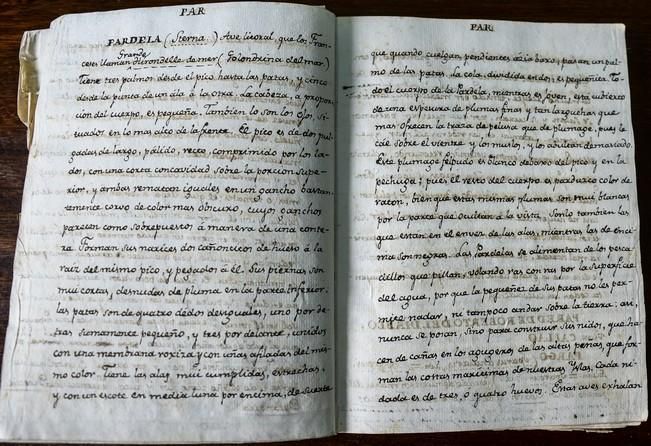 PAR
PARDELA (Sterna.) Ave litoral, que los Fran-
ceses llaman Grande Hirondelle de mer (Golondrina del mar.)
Tiene tres palmos desde el pico hasta las patas, y cinco
desde la punta de un ala á la otra. La cabeza, á propor-
cion del cuerpo, es pequeña. Tambien lo son los ojos, si-
tuados en lo mas alto de la frente. El pico es de dos pul-
gadas de largo, pálido, recto, comprimido por los la-
dos, con una corta concavidad sobre la porcion supe-
rior, y ambas rematan iguales en un gancho bastan-
temente corvo de color mas obscuro, cuyos ganchos
parecen como sobrepuestos á manera de una conte-
ra. Forman sus narices dos cañoncicos de hueso á la
raiz del mismo pico, y pegados á él. Sus piernas son
mui cortas, desnudas de pluma en la parte inferior:
las patas son de quatro dedos desiguales, uno por de-
tras sumamente pequeño, y tres por delante, unidos
con una membrana roxiza y con uñas afiladas del mis-
mo color. Tiene las alas mui cumplidas, estrechas,
y con un escote en media luna por encima, de suerte
PAR
que quando cuelgan, pendientes acia baxo, pasan un pal-
mo de las patas. La cola, dividida en dos, es pequeñita. To-
do el cuerpo de la Pardela, mientras es joven, está cubierto
de una espesura de plumas finas y tan largas que
mas ofrecen la traza de pelusa que de plumage, pues le
cae sobre el vientre y los muslos, y los abultan demasiado.
Este plumage felpudo es blanco debaxo del pico y en la
pechuga; pues el resto del cuerpo es pardusco color de
raton, bien que estas mismas plumas son mui blancas
por la parte que ocultan á la vista. Sonlo tambien las
que estan en el enves de las alas, mientras las de enci-
ma son negras. Las Pardelas se alimentan de los pesca-
dillos que pillan, volando ras con ras por la superficie
del agua, por que la pequeñez de sus patas no les per-
mite nadar, ni tampoco andar sobre la tierra: asi,
nunca se posan, sino para construir sus nidos, que ha-
cen de cañas en los agugeros de las altas peñas que for-
man las costas maritimas de nuestras Islas. Cada ni-
dada es de tres, o quatro huevos. Estas aves exhalan